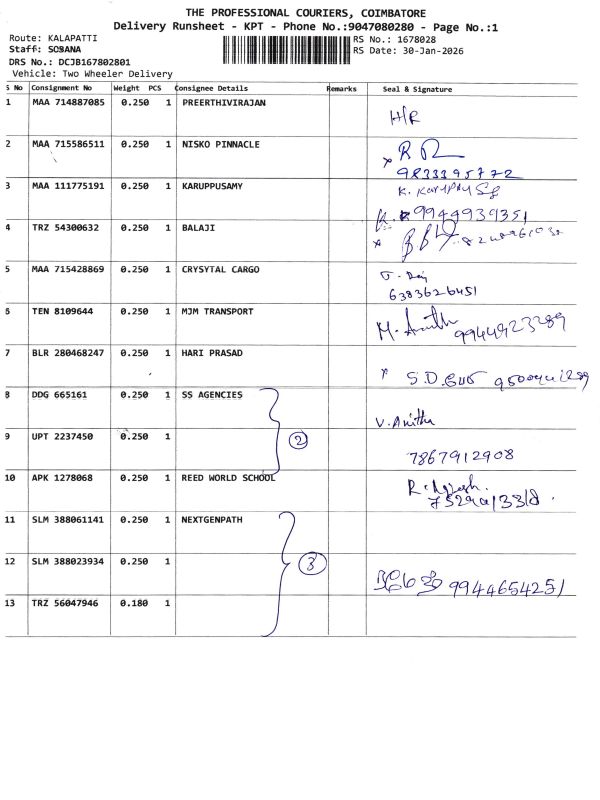 THE PROFESSIONAL COURIERS, COIMBATORE
Delivery Runsheet - KPT - Phone No.:9047080280 - Page No.:1
Route: KALAPATTI
Staff: SOBANA
DRS No.: DCJB167802801
Vehicle: Two Wheeler Delivery
RS No.: 1678028
RS Date: 30-Jan-2026
S No Consignment No Weight PCS Consignee Details Remarks Seal & Signature
1 MAA 714887085 0.250 1 PREERTHIVIRAJAN H/R
2 MAA 715586511 0.250 1 NISKO PINNACLE
9833395772
3 MAA 111775191 0.250 1 KARUPPUSAMY
9944939351
4 TRZ 54300632 0.250 1 BALAJI
5 MAA 715428869 0.250 1 CRYSYTAL CARGO
6383626451
6 TEN 8109644 0.250 1 MJM TRANSPORT
9944923289
7 BLR 280468247 0.250 1 HARI PRASAD
S.D.
8 DDG 665161 0.250 1 SS AGENCIES V. Anitha
9 UPT 2237450 0.250 1 2
7867912908
10 APK 1278068 0.250 1 REED WORLD SCHOOL
11 SLM 388061141 0.250 1 NEXTGENPATH
12 SLM 388023934 0.250 1 3
9944654251
13 TRZ 56047946 0.180 1